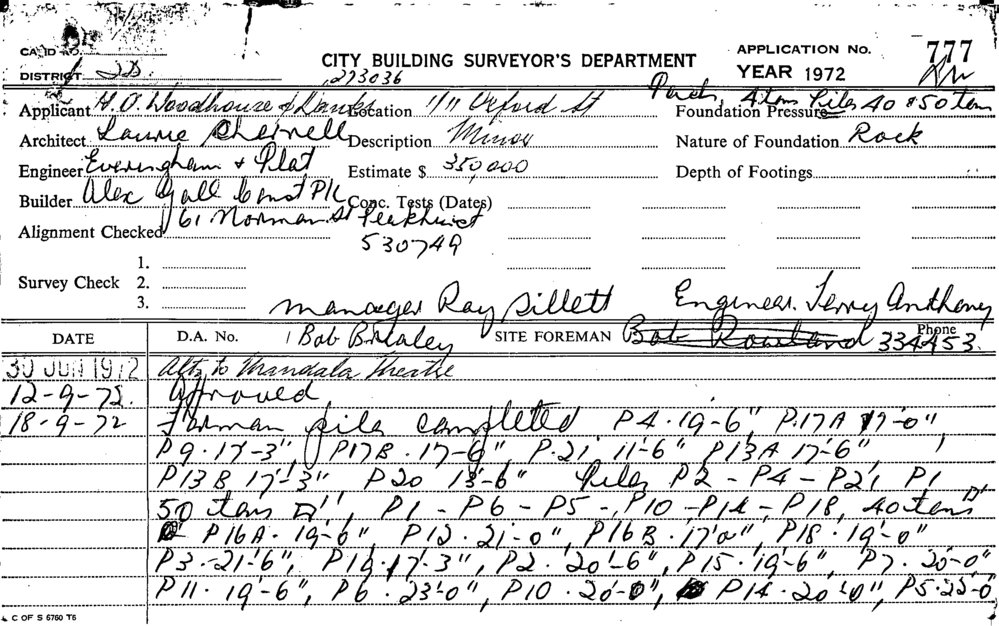 CARD NO.
DISTRICT 2D.
CITY BUILDING SURVEYOR'S DEPARTMENT
273036
APPLICATION No. 777
YEAR 1972
Applicant H.O. Woodhouse & Danks Location 1/11 Oxford St
Rock 4 tons Piles 40 & 50 tons
Foundation Pressure
Architect Laurie Chernell Description Minor Nature of Foundation Rock
Engineer Everingham & Plat Estimate $ 350,000 Depth of Footings
Builder Alex Gall Const P/L Conc. Tests (Dates)
Alignment Checked 61 Norman St Peakhurst
530749
Survey Check 1.
2.
3.
Manager Ray Sillett Engineer. Terry Anthony
DATE D.A. No. Bob Brealey SITE FOREMAN Bob Rowland Phone 334453.
30 JUN 1972 Altn to Mandala Theatre
12-9-72. Approved
18-9-72 pile completed P4.19-6", P.17A 17'-0"
P9.17-3", P17B.17-6", P.21, 11'-6" P13A 17'-6",
P13B 17'-3" P20 13'-6" Piles P2 - P4 - P21, P1
50 tons, P1 - P6 - P5 - P10 - P14 - P18, 40 tons
P16A. 19-6", P12.21-0", P16B.17'0", P18.19'-0"
P3.21'6", P19.17-3", P2.20'-6", P15.19'-6", P7.20'-0
P11.19'-6", P6.23'-0", P10.20'-0", P14.20'-0", P5.22-0
C OF S 6760 T6